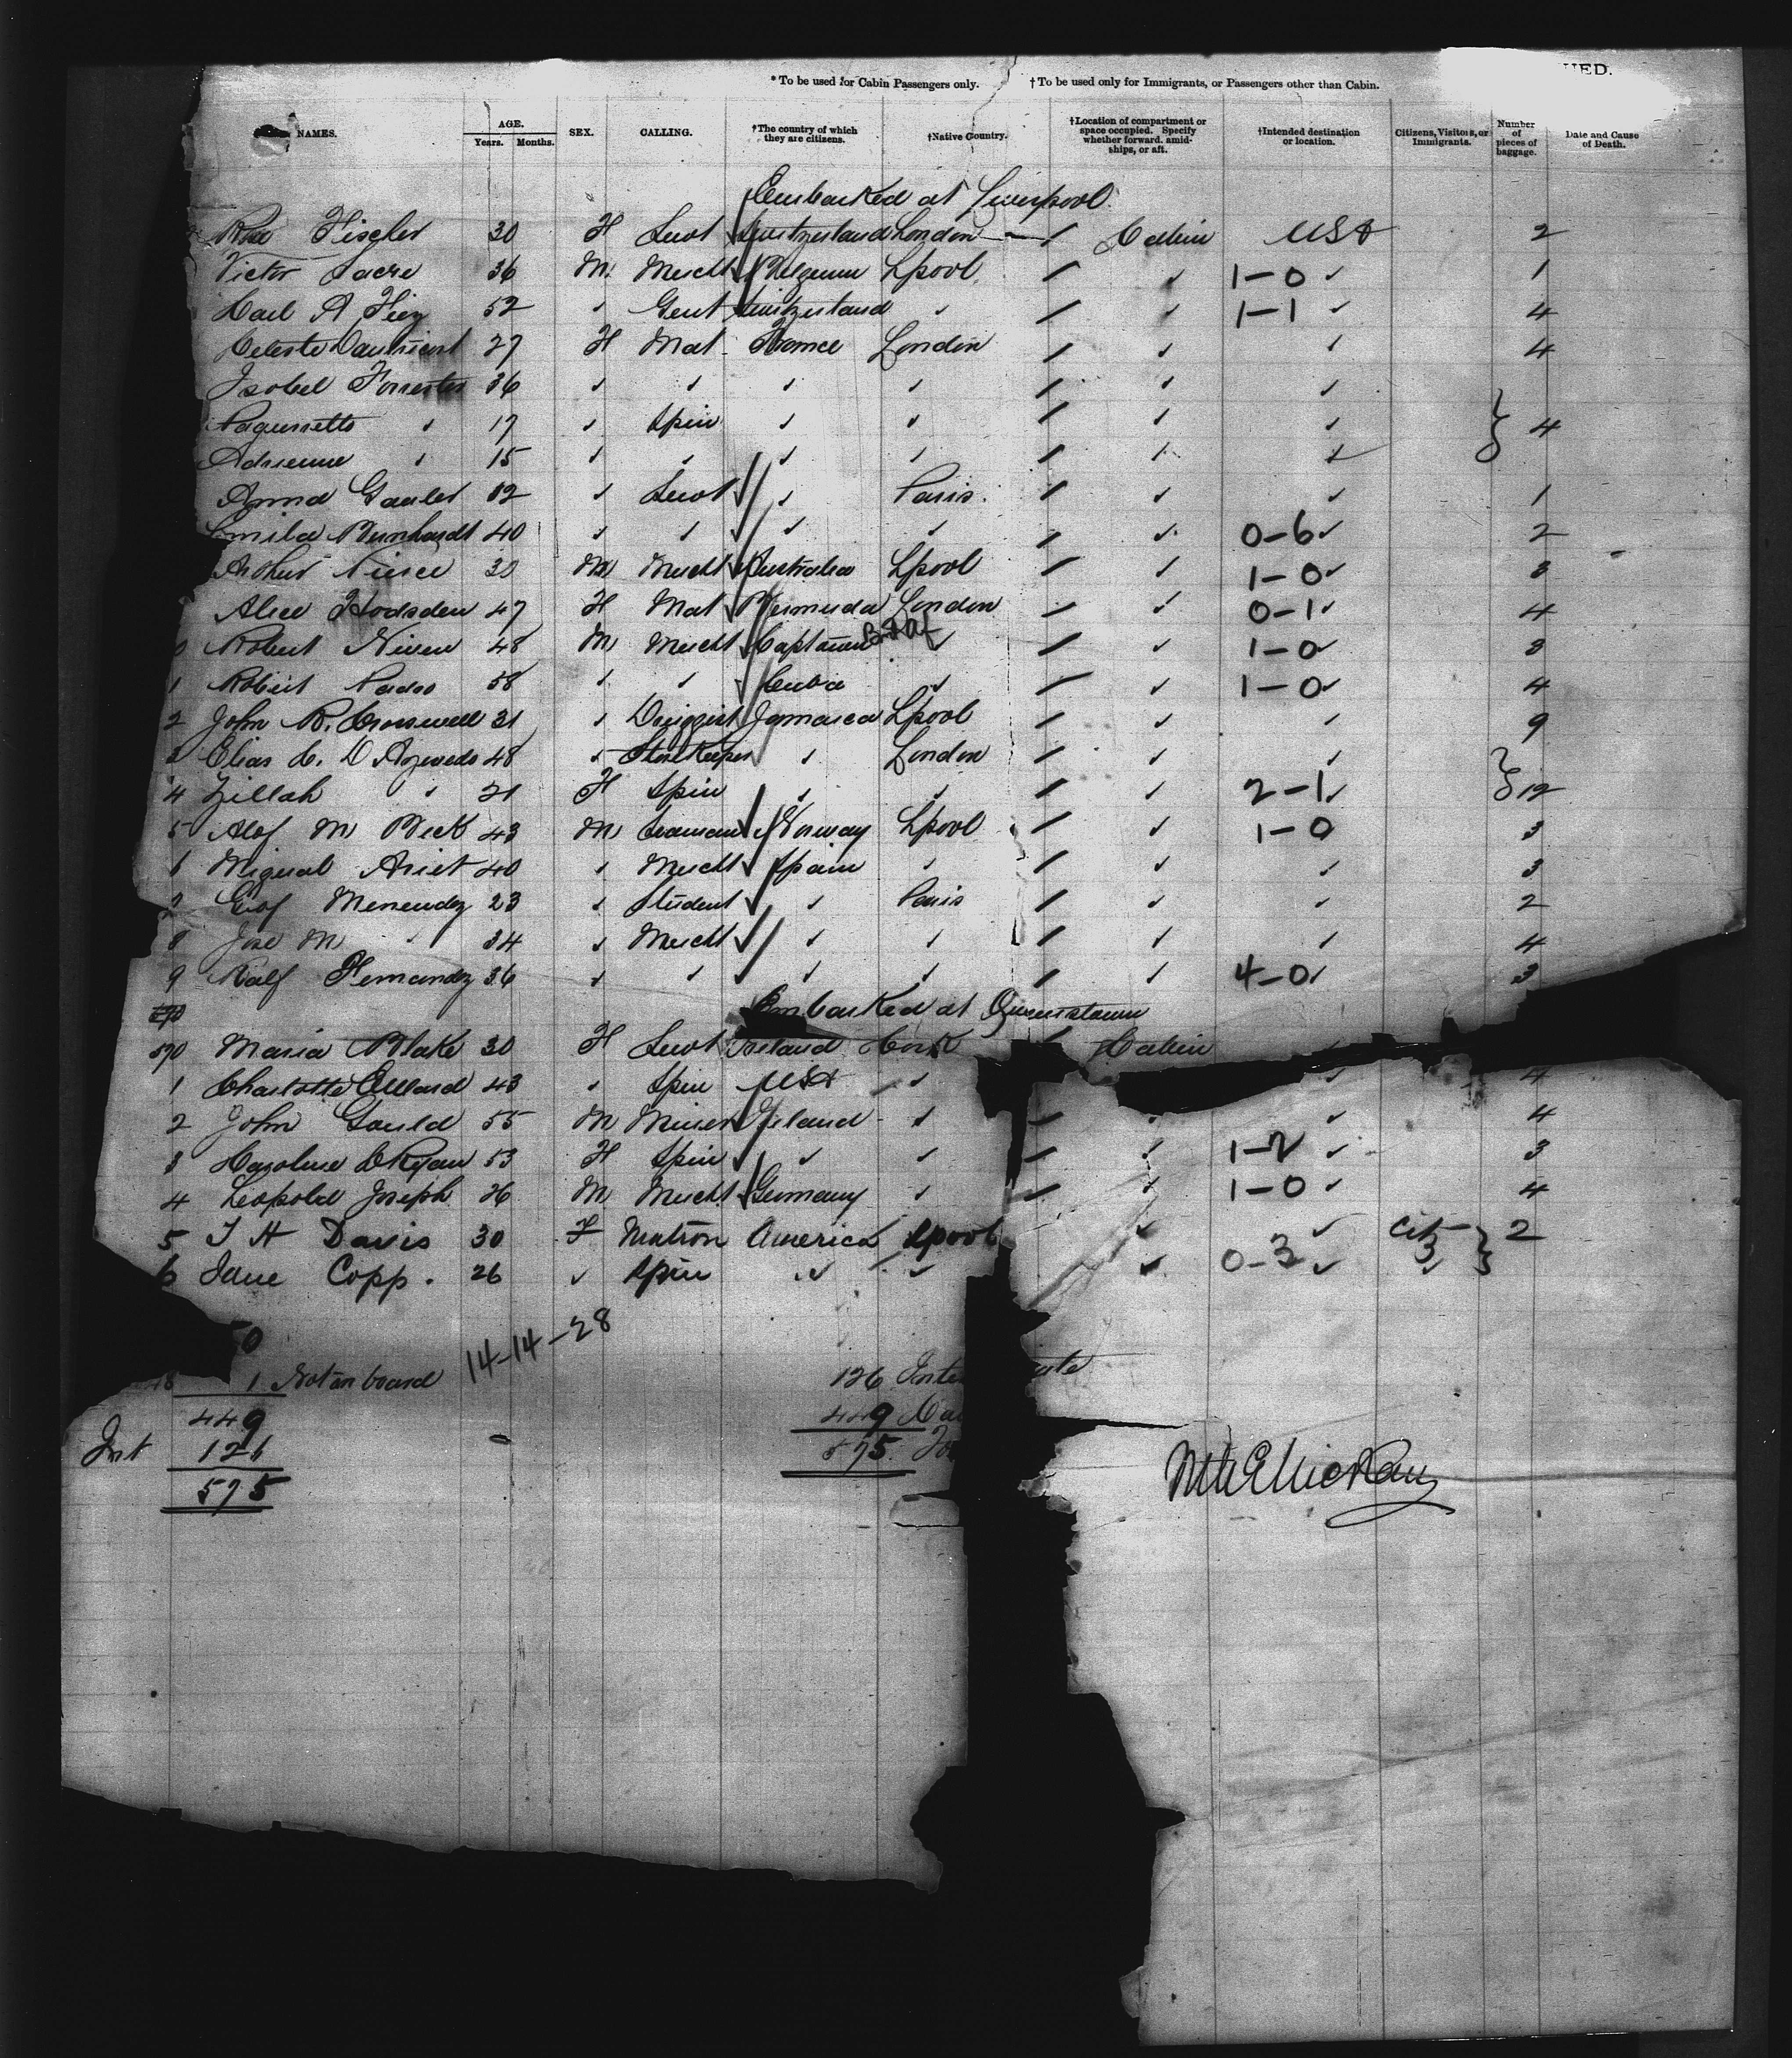 UED.
* To be used for Cabin Passengers only. † To be used only for Immigrants, or Passengers other than Cabin.
NAMES. AGE. Years. Months. SEX. CALLING. †The country of which they are citizens. †Native Country. †Location of compartment or space occupied. Specify whether forward, amidships, or aft. †Intended destination or location. Citizens, Visitors, or Immigrants. Number of pieces of baggage. Date and Cause of Death.
Embarked at Liverpool
Rose Fischer 30 F Servt Switzerland London Cabin USA 2
Victor Sacre 36 M Mercht Belgium Lpool ✓ 1-0 ✓ 1
Carl A 52 ✓ Gent Switzerland ✓ ✓ 1-1 ✓ 4
Celeste 27 F Mat France London ✓ ✓ 4
Isobel Forrester 36 ✓ ✓ ✓ ✓ ✓ ✓
✓ 17 ✓ Spin ✓ ✓ ✓ ✓ } 4
Adrienne ✓ 15 ✓ ✓ ✓ ✓ ✓ ✓
Anna Gaulet ✓ Servt ✓ Paris ✓ ✓ 1
Bernhardt 40 ✓ ✓ ✓ ✓ ✓ 0-6 ✓ 2
Arthur M Mercht Australia Lpool ✓ 1-0 ✓ 3
Alice Hodsden 47 F Mat Bermuda London ✓ 0-1 ✓ 4
0 Robert Niven 48 M Mercht Captown ✓ ✓ 1-0 ✓ 3
1 Robert 58 ✓ ✓ Cuba ✓ ✓ 1-0 ✓ 4
2 John R. Crosswell 31 ✓ Druggist Jamaica Lpool ✓ ✓ 9
3 Elias C. D Azevedo 48 ✓ Storekeeper ✓ London ✓ ✓
4 Zillah ✓ 21 F Spin ✓ ✓ ✓ 2-1 ✓ } 12
5 Alof M Beck 43 M Seaman Norway Lpool ✓ 1-0 3
6 Migual Ariet 40 ✓ Mercht Spain ✓ ✓ ✓ 3
Menendez 23 ✓ Student ✓ Paris ✓ ✓ 2
8 Jose M ✓ 34 ✓ Mercht ✓ ✓ ✓ ✓ 4
9 Ralf Fernandez 36 ✓ ✓ ✓ ✓ ✓ 4-0 ✓ 3
Embarked at Queenstown
570 Maria Blake 30 F Servt Ireland Cork Cabin
1 Charlotte Allard 43 ✓ Spin USA ✓ ✓ 4
2 John Gauld 55 M Miner Ireland ✓ ✓ ✓ 4
3 Caroline 53 F Spin ✓ ✓ ✓ 1-2 ✓ 3
4 Leopold Joseph 26 M Mercht Germany ✓ ✓ 1-0 ✓ 4
5 J H Davis 30 F Matron America Lpool ✓ ✓ Cit } 2
6 Jane Copp. 26 ✓ Spin ✓ ✓ ✓ 0-3 ✓ 3
0
14-14-28
1 Not on board 126 Inte ate
449 449 Ca
Int 126 575 To
575